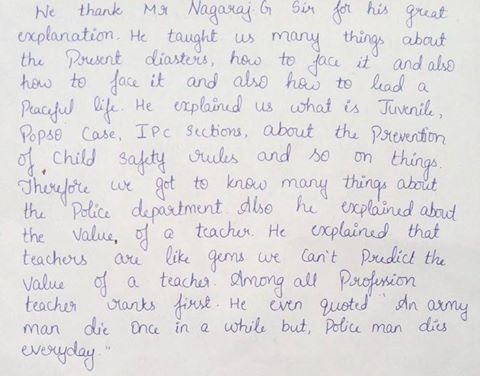 We thank Mr Nagaraj.G Sir for his great
explanation. He taught us many things about
the Present diasters, how to face it and also
how to face it and also how to lead a
Peaceful life. He explained us what is Juvenile,
Popso Case, IPC Sections, about the Prevention
of child safety rules and so on things.
Therefore we got to know many things about
the Police department. Also he explained about
the Value, of a teacher. He explained that
teachers are like gems we Can't Predict the
Value of a teacher. Among all Profession
teacher ranks first. He even quoted "An army
man die Once in a while but, Police man dies
everyday."